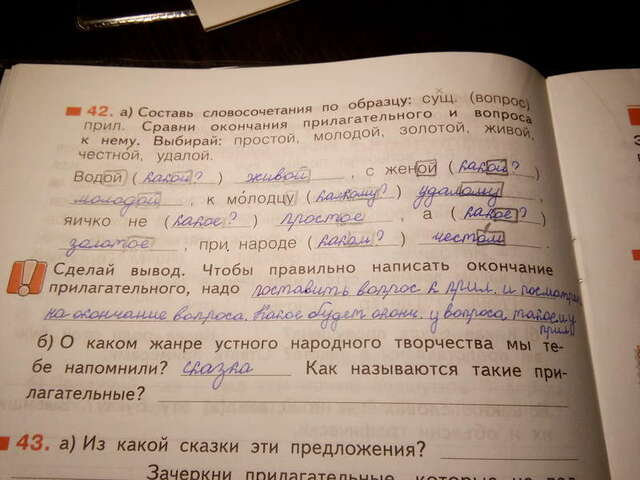 42. а) Составь словосочетания по образцу: сущ. (вопрос)
прил. Сравни окончания прилагательного и вопроса
к нему. Выбирай: простой, молодой, золотой, живой,
честной, удалой.
Водой (какой?) живой, с женой (какой?)
молодой, к молодцу (какому?) удалому,
яичко не (какое?) простое, а (какое?)
золотое, при народе (каком?) честном.
Сделай вывод. Чтобы правильно написать окончание
прилагательного, надо поставить вопрос к прил. и посмотри
на окончание вопроса. Какое будет оконч. у вопроса, такое и у
прил.
б) О каком жанре устного народного творчества мы те-
бе напомнили? сказка Как называются такие при-
лагательные?
43. а) Из какой сказки эти предложения?
Зачеркни прилагательные, которые не